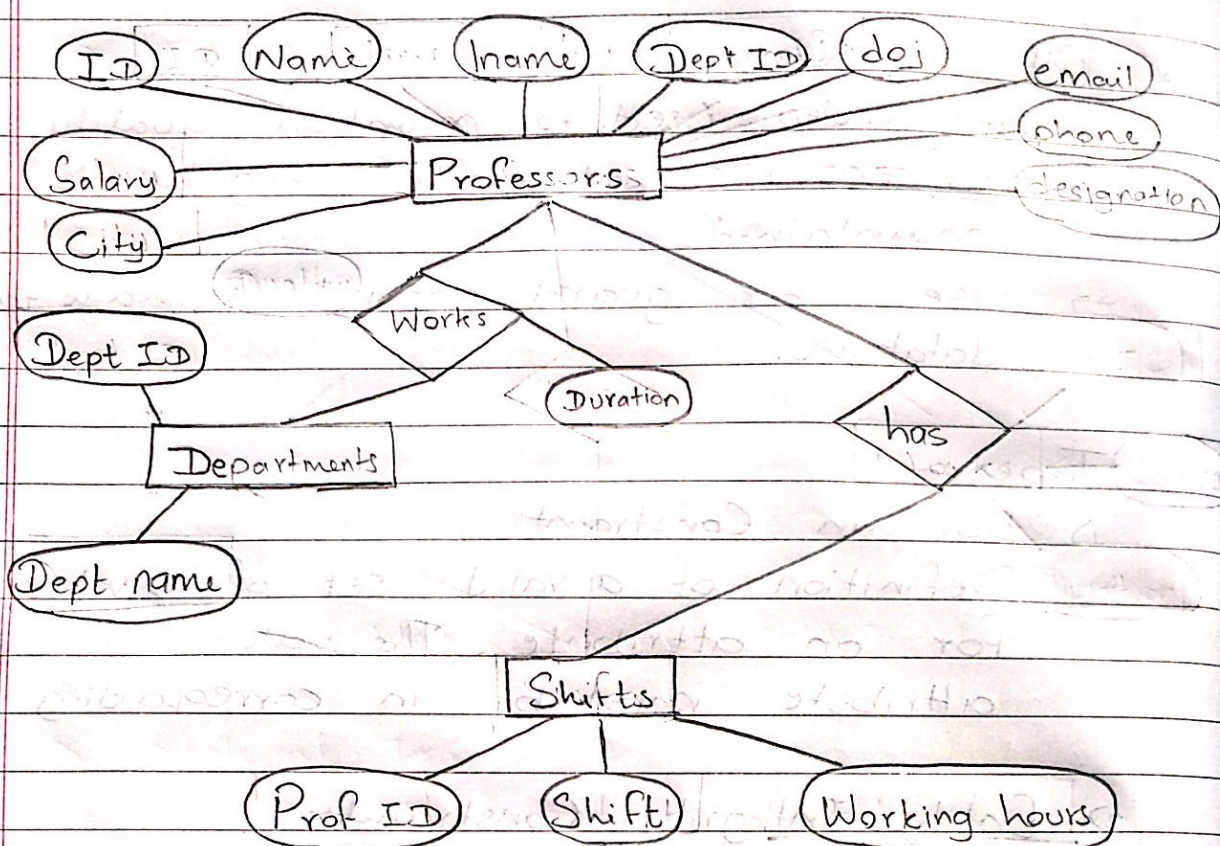 ID
Name
lname
Dept ID
doj
email
phone
designation
Salary
City
Professors
Works
Duration
has
Dept ID
Departments
Dept name
Shifts
Prof ID
Shift
Working hours